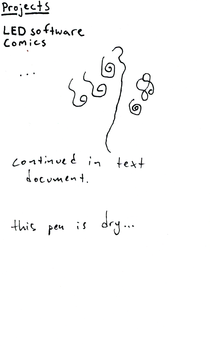 Projects
LED software
Comics
...
continued in text
document.
this pen is dry...